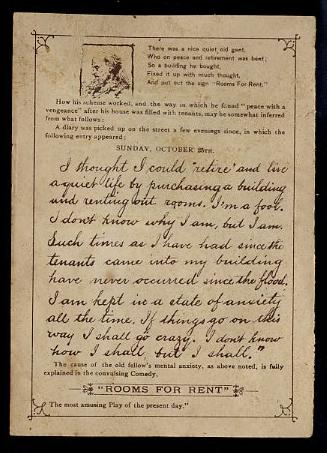 There was a nice quiet old gent,
Who on peace and retirement was bent;
So a building he bought,
Fixed it up with much thought,
And put out the sign "Rooms For Rent."
How his scheme worked, and the way in which he found "peace with a
vengeance" after his house was filled with tenants, may be somewhat inferred
from what follows:
A diary was picked up on the street a few evenings since, in which the
following entry appeared:
SUNDAY, OCTOBER 25TH.
I thought I could "retire" and live
a quiet life by purchasing a building
and renting out rooms. I'm a fool.
I don't know why I am, but I am.
Such times as I have had since the
tenants came into my building
have never occurred since the flood.
I am kept in a state of anxiety
all the time. If things go on this
way I shall go crazy. I don't know
how I shall, but I shall."
The cause of the old fellow's mental anxiety, as above noted, is fully
explained in the convulsing Comedy.
"ROOMS FOR RENT"
"The most amusing Play of the present day."